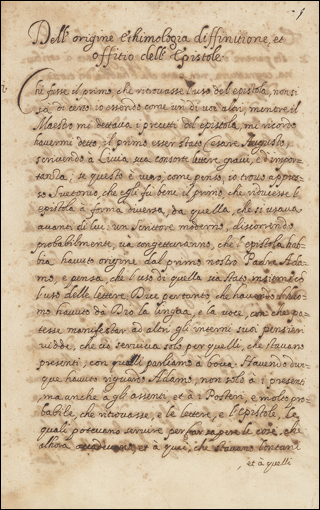 Dell' origine Ethimologia diffinitione, et
offitio dell' Epistole.
Chi fusse il primo che ritrovasse l'uso del epistola, non si
sà di certo, essendo come un di voi altri, mentre il
Maestro mi dettava i precetti del epistola, mi ricordo
havermi detto il primo esser stato Cesare Augusto,
scrivendo a Livia sua consorte lettere gravi, e d'impor-
tenza, se questo è vero, come penso, io trovo appres-
so Suetonio, che egli fù bene il primo che riducesse l'
epistole a forma diversa, da quella, che si usava
avanti di lui: un scrittore moderno, discorrendo
probabilmente, và congetturanno, che l'epistola hab-
bia havuto origine dal primo nostro Padre Ada-
mo, e pensa, che l'uso di quella sia stato insieme co
l'uso delle lettere Dice pertanto, che havendo Ada-
mo havuto da Dio la lingua, e la voce, con che po-
tesse manifestar ad altri gli interni suoi pensieri
vidde, che ciò serviva solo per quelli, che stavano
presenti, con quelli parliamo a bocca. Havendo dun-
que havuto riguardo Adamo, non solo a i presenti,
ma anche à gli assenti, et à Posteri, è molto pro-
babile, che ritrovasse, e le lettere, e l'epistole, le
quali potevano servire per far sapere le cose, che
alhora accadevano, et à quei, che stavano lontani
et à quelli